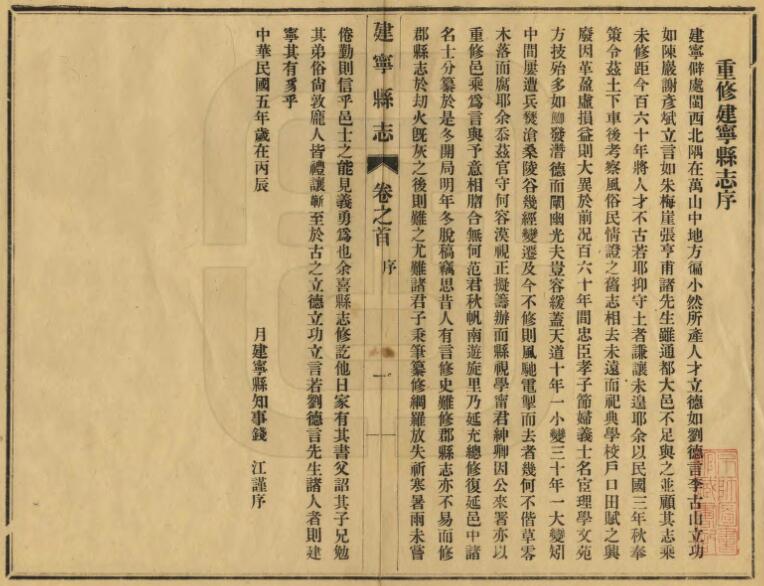 重修建寧縣志序
建寧僻處閩西北隅在萬山中地方偏小然所產人才立德如劉德言李古山立功
如陳嚴謝彥斌立言如朱梅崖張亨甫諸先生雖通都大邑不足與之並顧其志乘
未修距今百六十年將人才不古若耶抑守土者謙讓未遑耶余以民國三年秋奉
策令茲土下車後考察風俗民情證之舊志相去未遠而祀典學校戶口田賦之興
廢因革盈虛損益則大異於前况百六十年間忠臣孝子節婦義士名宦理學文苑
方技殆多如鯽發潛德而闡幽光夫豈容緩蓋天道十年一小變三十年一大變矧
中間屢遭兵燹滄桑陵谷幾經變遷及今不修則風馳電掣而去者幾何不偕草零
木落而腐耶余忝茲官守何容漠視正擬籌辦而縣視學甯君紳卿因公來署亦以
重修邑乘爲言與予意相脗合無何范君秋帆南遊旋里乃延充總修復延邑中諸
名士分纂於是冬開局明年冬脫稿竊思昔人有言修史難修郡縣志亦不易而修
郡縣志於劫火旣灰之後則難之尤難諸君子秉筆纂修綱羅放失祈寒暑雨未嘗
建寧縣志
卷之首
序
一
倦勤則信乎邑士之能見義勇爲也余喜縣志修訖他日家有其書父詔其子兄勉
其弟俗尙敦龐人皆禮讓晰至於古之立德立功立言若劉德言先生諸人者則建
寧其有豸乎
中華民國五年歲在丙辰
月建寧縣知事錢
江謹序